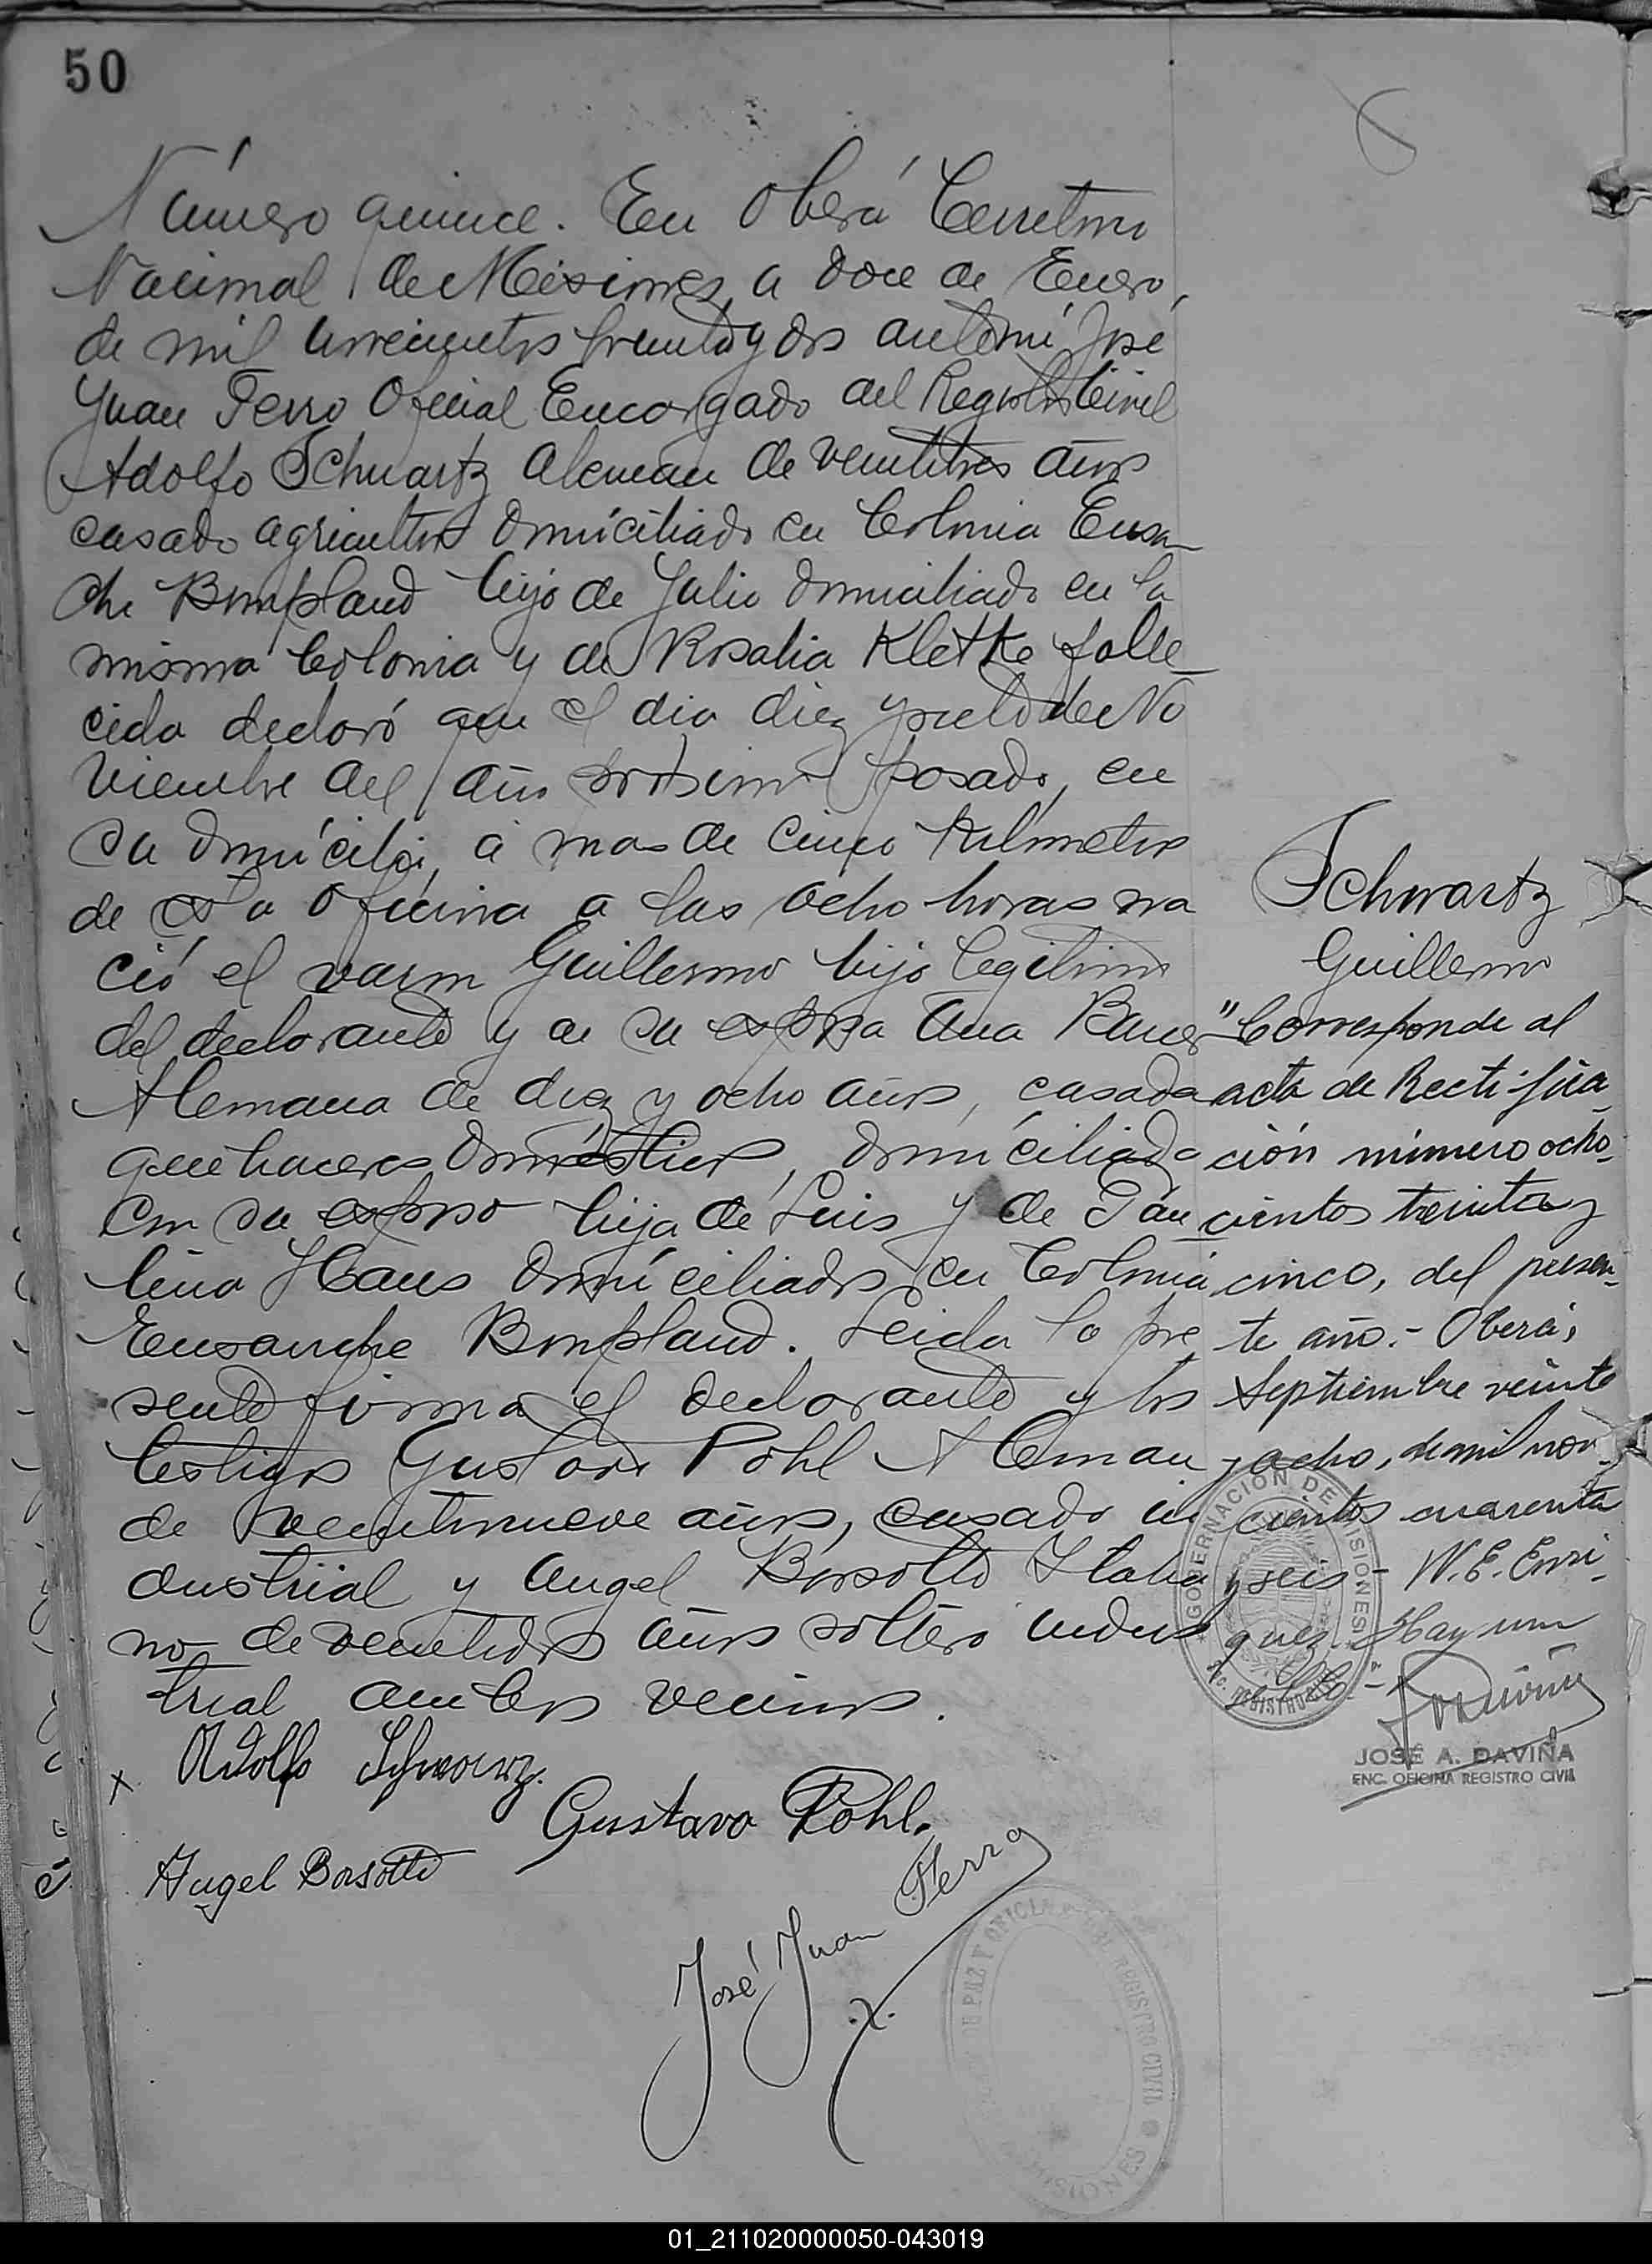 50
Número quince. En Oberá Territorio
Nacional de Misiones, a doce de Enero,
de mil novecientos treinta y dos ante mi José
Juan Ferro Oficial Encargado del Registro Civil
Adolfo Schwartz Aleman de veintitres años
casado agricultor domiciliado en Colonia Ensan
che Bonpland hijo de Julio domiciliado en la
misma Colonia y de Rosalia Klettke falle
cida declaró que el dia diez y siete de No
viembre del año próximo pasado, en
su domicilio, á mas de cinco kilometros
de esta oficina a las ocho horas na
ció el varon Guillermo hijo legitimo
del declarante y de su esposa Ana Bauer
Alemana de diez y ocho años, casada
quehaceres domésticos, domiciliada
con su esposo hija de Luis y de Pau
lina Haus domiciliados en Colonia
Ensanche Bonpland. Leida la pre
sente firma el declarante y los
testigos Gustavo Pohl Aleman
de veintinueve años, casado in
dustrial y Angel Borsotto Italia
no de veintidos años soltero indus
trial ambos vecinos.
Adolfo Schwarz.
Gustavo Pohl.
Angel Borsotti
José Juan Ferro
Schwartz
Guillermo
"Corresponde al
acta de Rectifica
ción número ocho
cientos treinta y
cinco, del presen
te año.- Oberá,
Septiembre veinte
y ocho, de mil nove
cientos cuarenta
y seis - W. E. Enri
quez. Hay un
GOBERNACIÓN DE MISIONES
REGISTRO CIVIL
JOSÉ A. DAVIÑA
ENC. OFICINA REGISTRO CIVIL
DE PAZ Y OFICINA DEL REGISTRO CIVIL
MISIONES
01_211020000050-043019